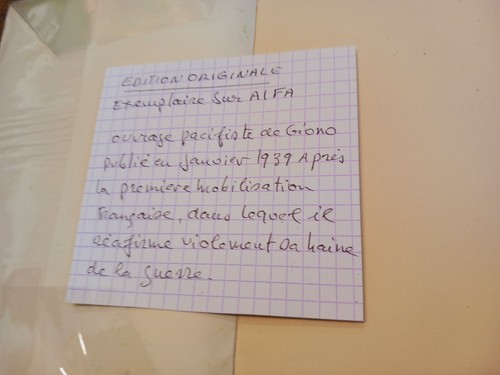 EDITION ORIGINALE
Exemplaire Sur ALFA
ouvrage pacifiste de Giono
publié en Janvier 1939 Après
la première mobilisation
Française, dans lequel il
réafirme violement Sa haine
de la guerre.